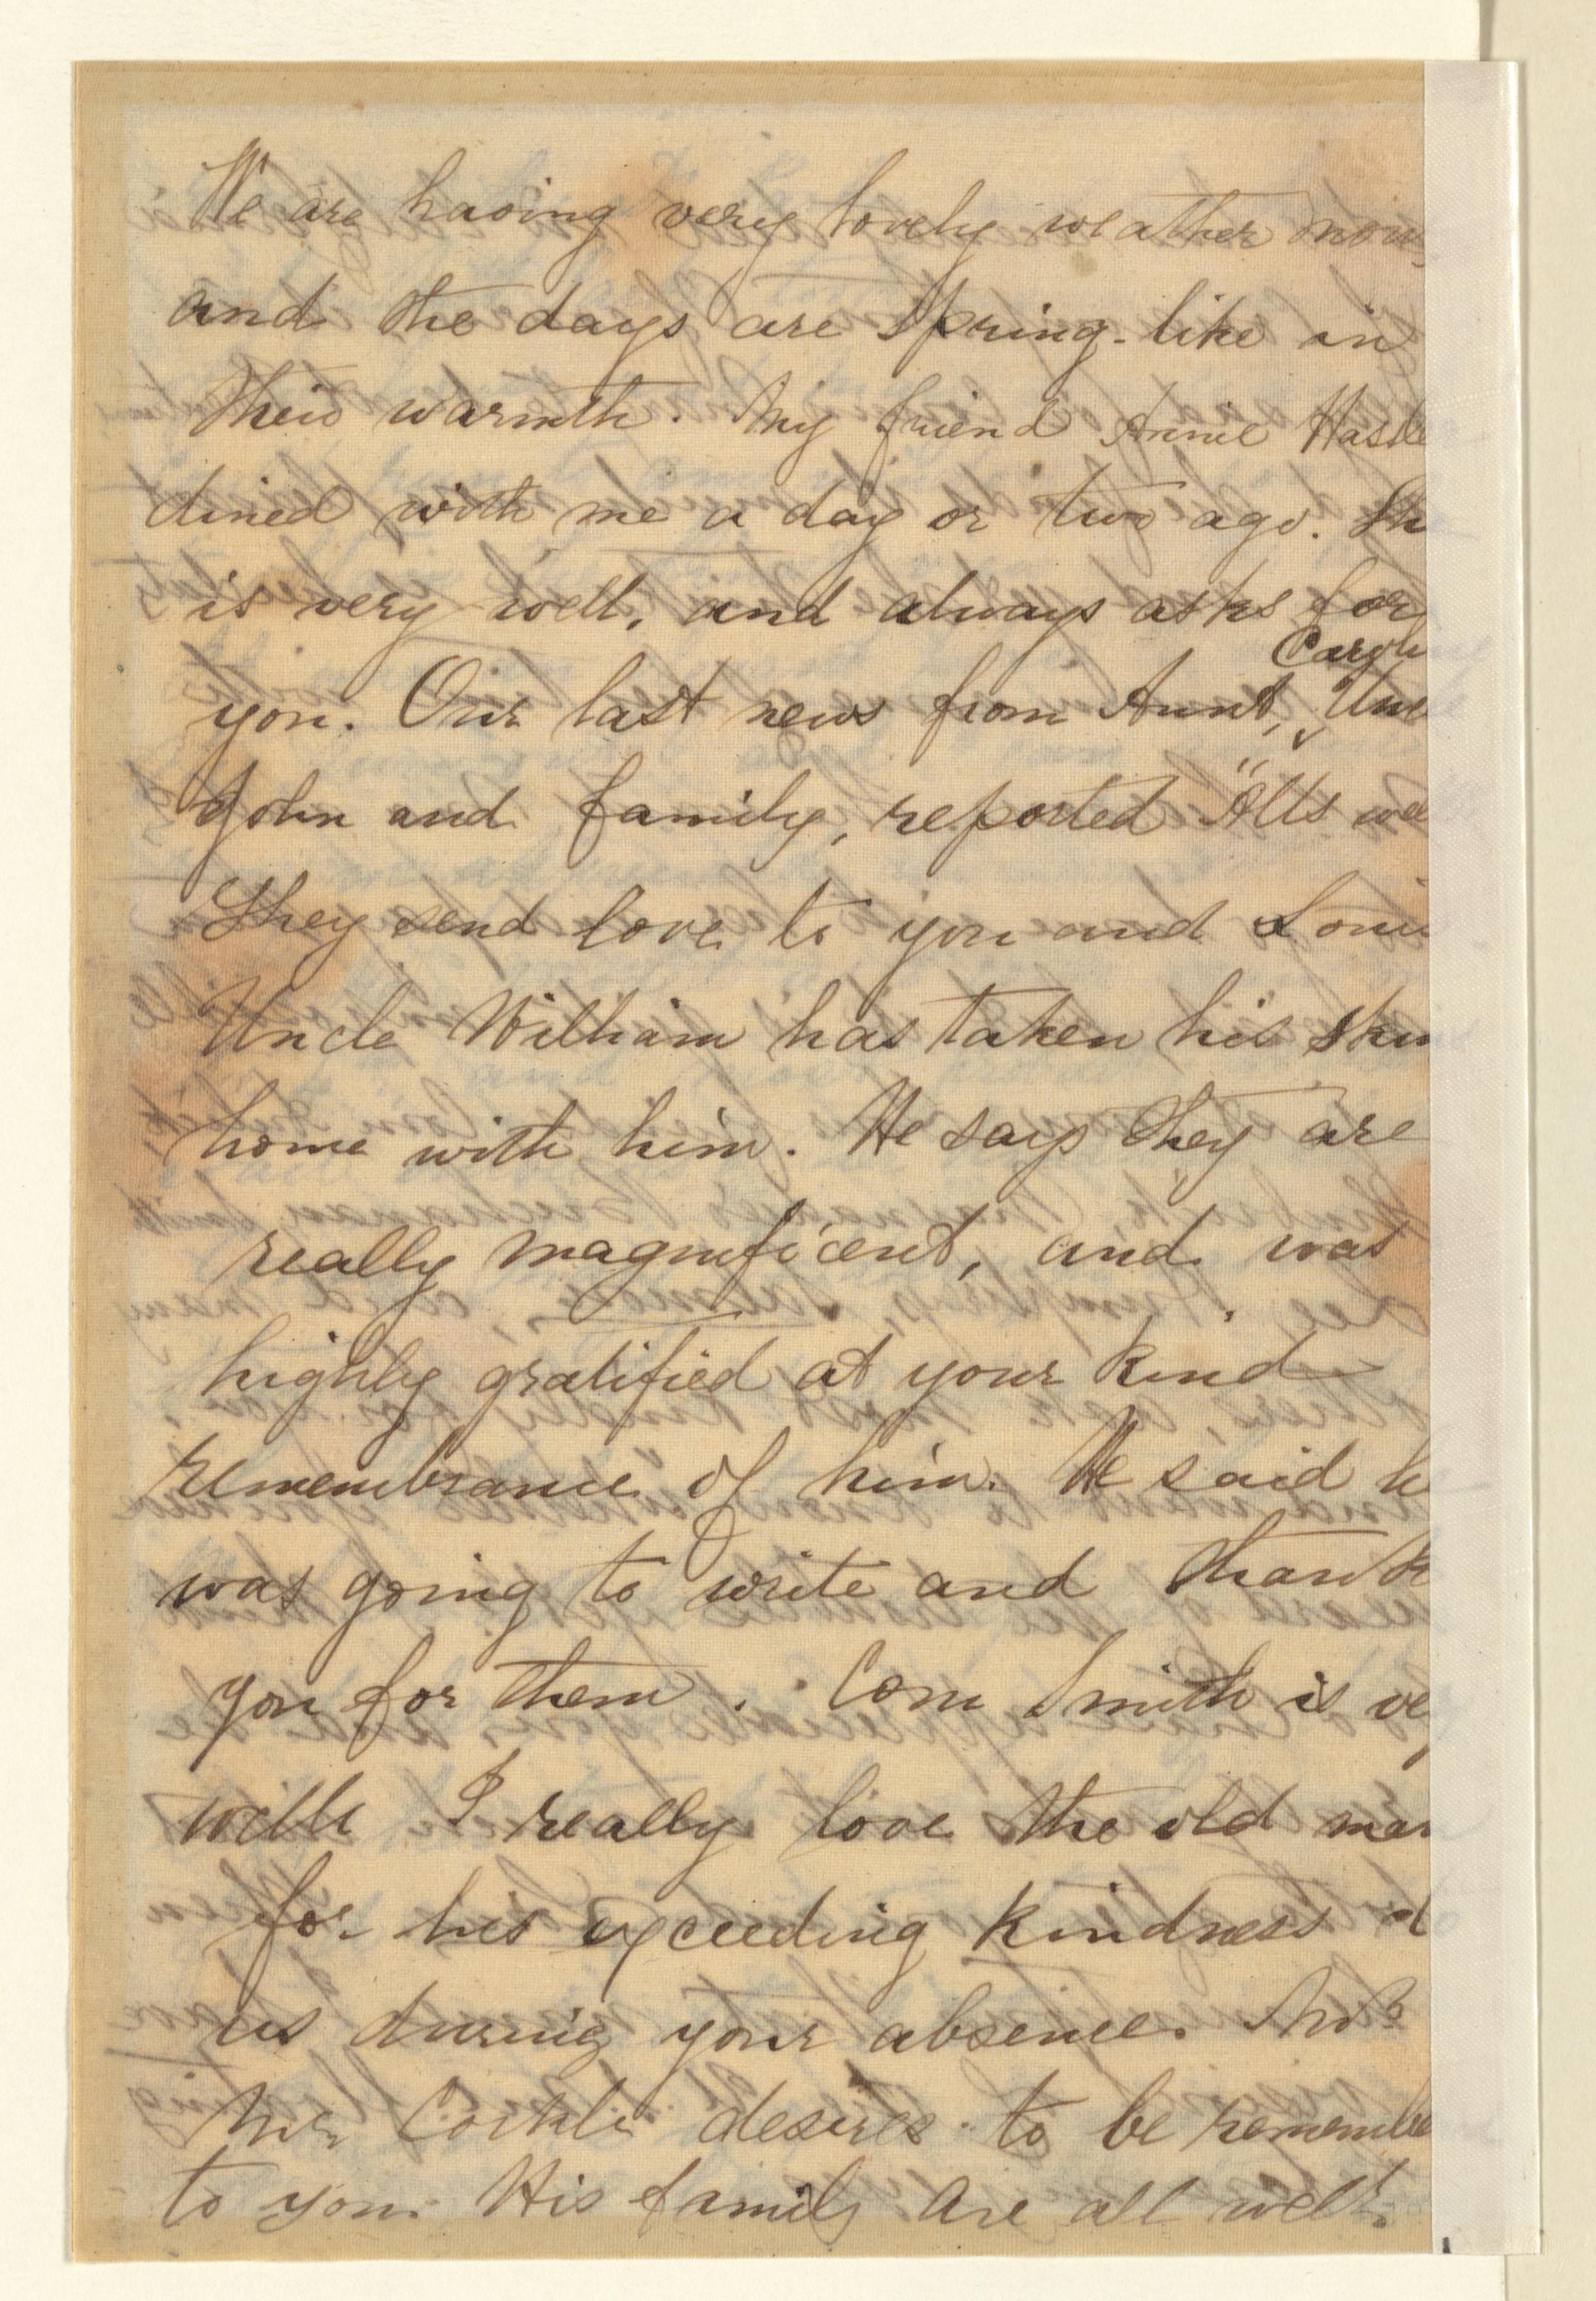 We are having very lovely weather now,
and the days are Spring-like in
their warmth. My friend Annie Haske
dined with me a day or two ago. Sh
is very well, and always asks for
Caroli
you. Our last news from Aunt, Unc
John and family, reported "All's wel
They send love to you and Loui
Uncle William has taken his skin
home with him. He says they are
really magnificent, and was
highly gratified at your kind
remembrance of him. He said he
was going to write and thank
you for them. Com Smith is ve
well I really love the old man
for his exceeding kindness
us during your absence.
Mr. desires to be remembe
to you. His family are all well.